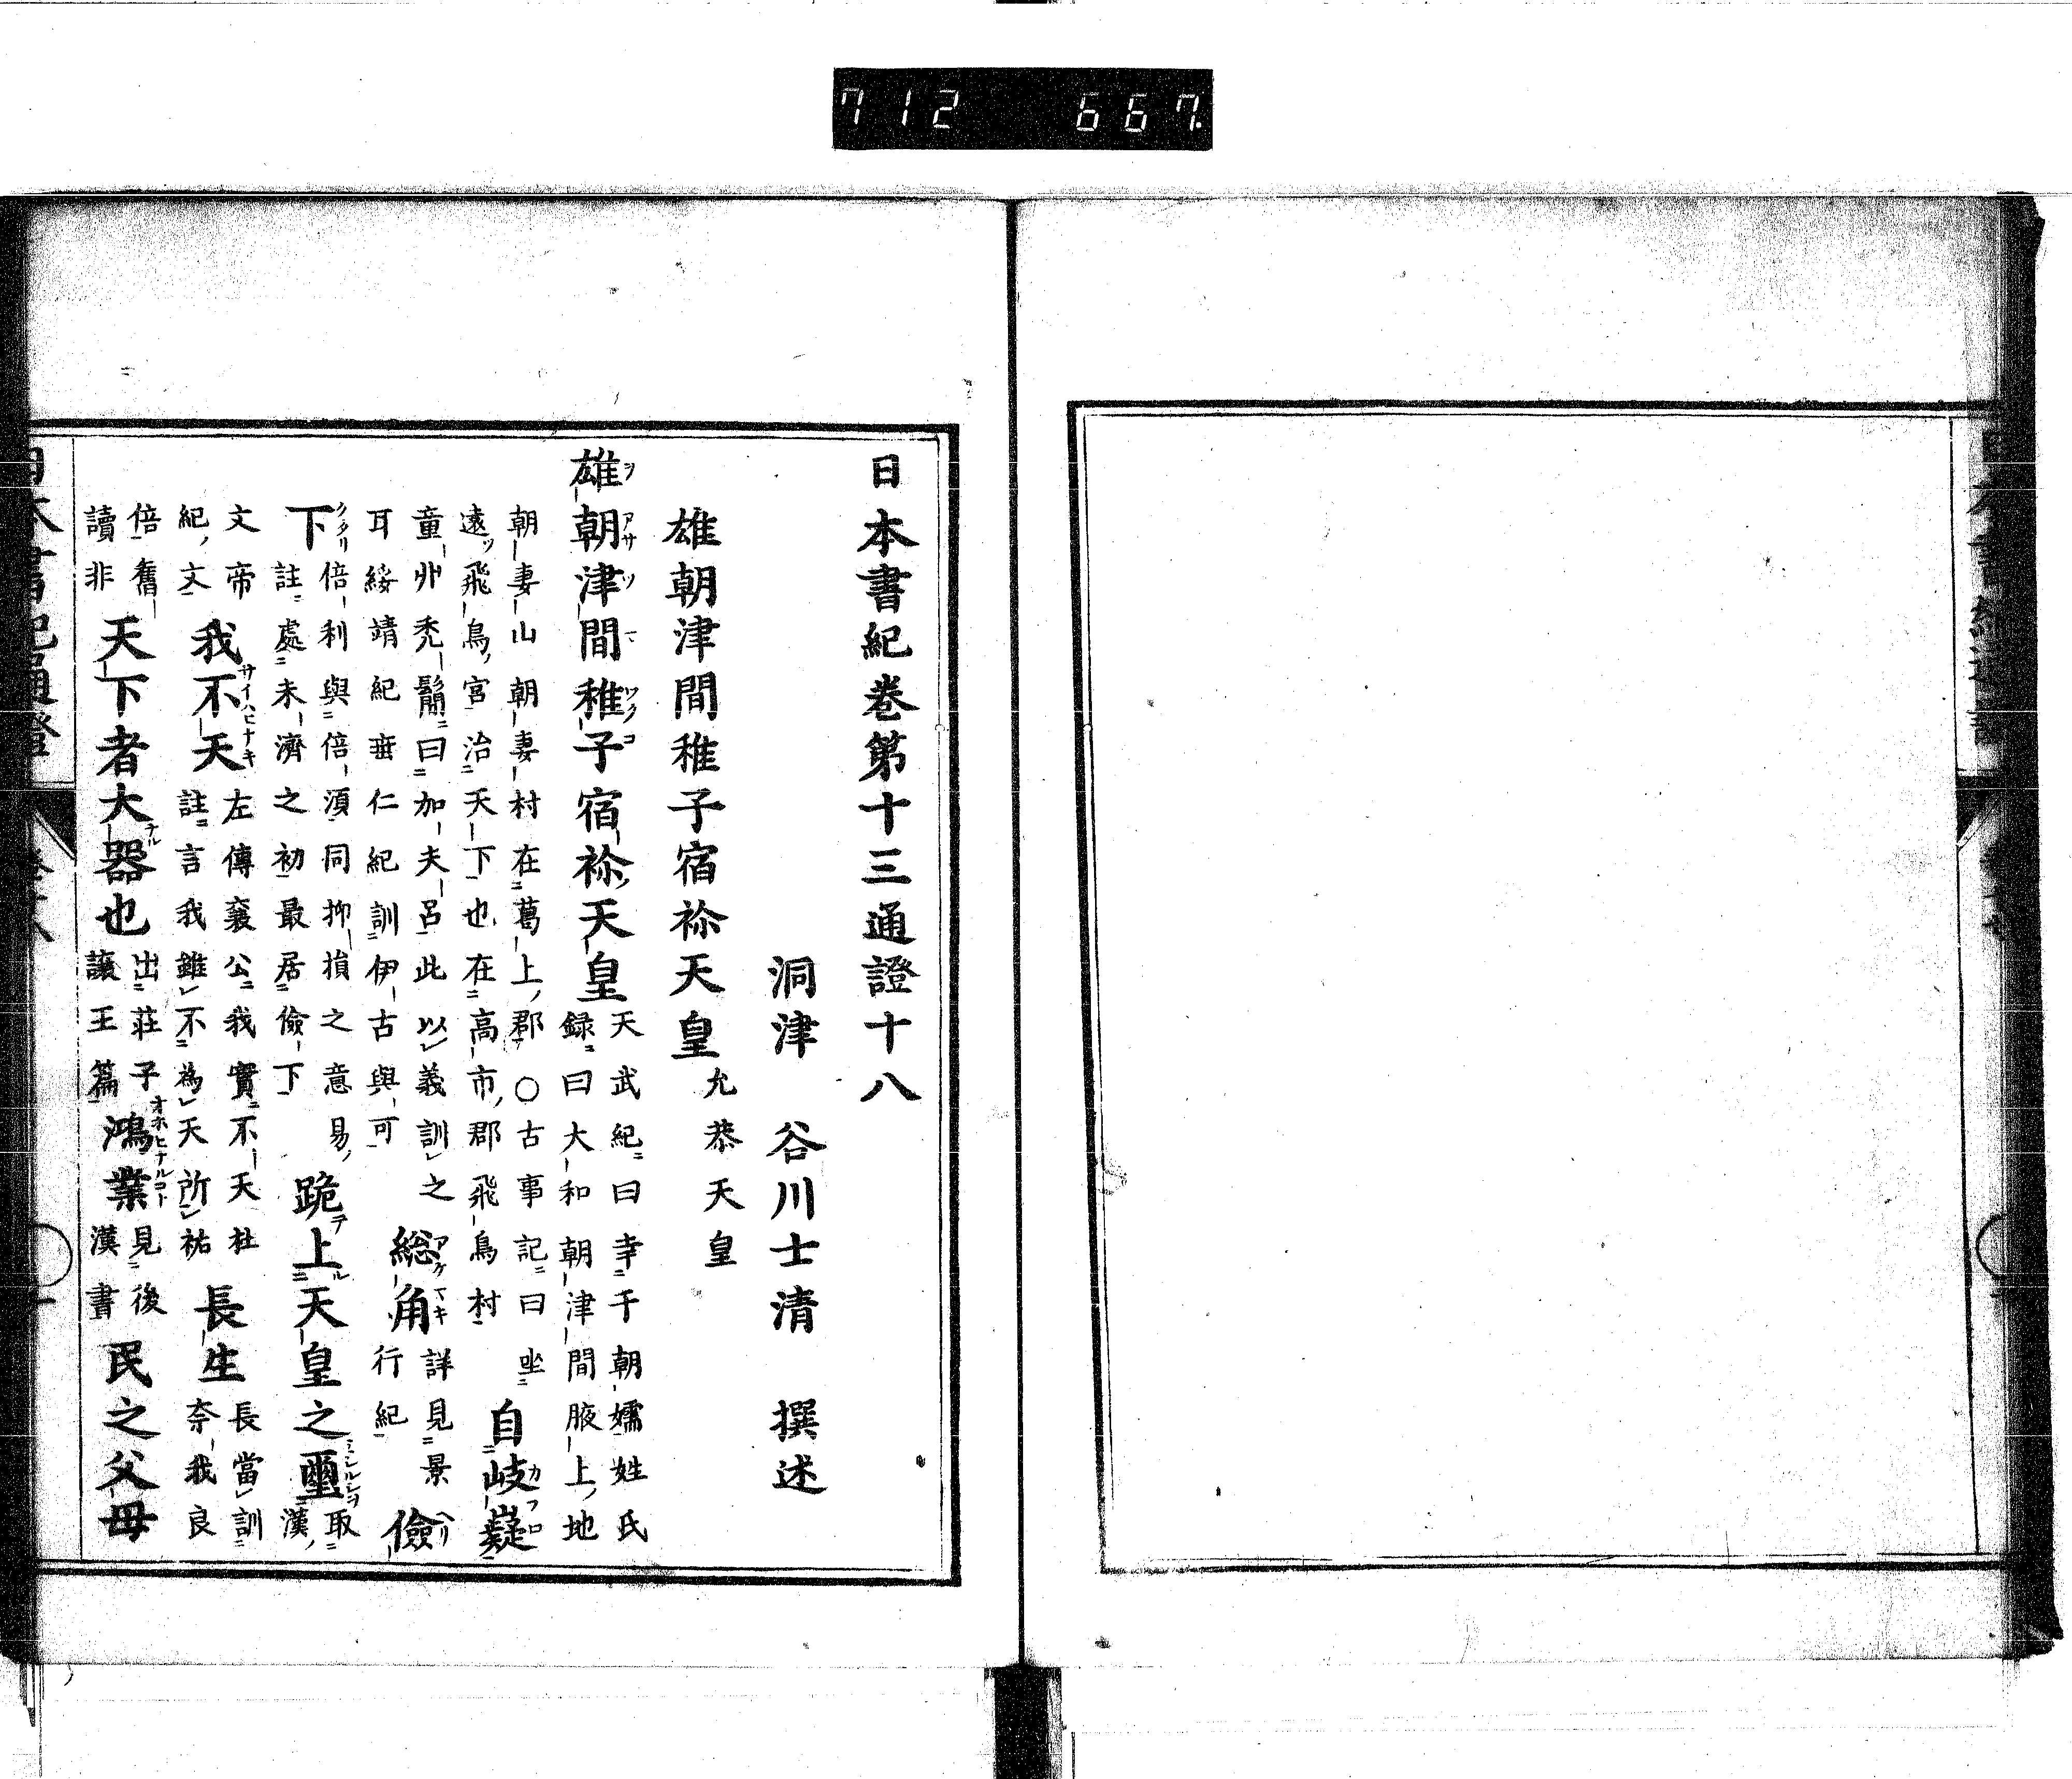 712 667
日本書紀卷第十三通證十八
洞津 谷川士清 撰述
雄朝津間稚子宿祢天皇 允恭天皇
雄朝津間稚子宿祢天皇 天武紀曰幸于朝嬬姓氏
録曰大和朝津間腋上地
朝妻山朝妻村在葛上郡○古事記曰坐
遠飛鳥宮治天下也在高市郡飛鳥村 自岐嶷
童丱禿鬜曰加夫呂此以義訓之
耳綏靖紀垂仁紀訓伊古與可 総角 詳見景
行紀 儉
下 倍利與倍須同抑損之意易
註處未濟之初最居儉下 跪上天皇之璽 取
漢
文帝
紀文 我不天 左傳襄公我實不天杜
註言我雖不為天所祐 長生 長當訓
奈我良
倍舊
讀非 天下者大器也 出莊子
讓王篇 鴻業 見後
漢書 民之父母